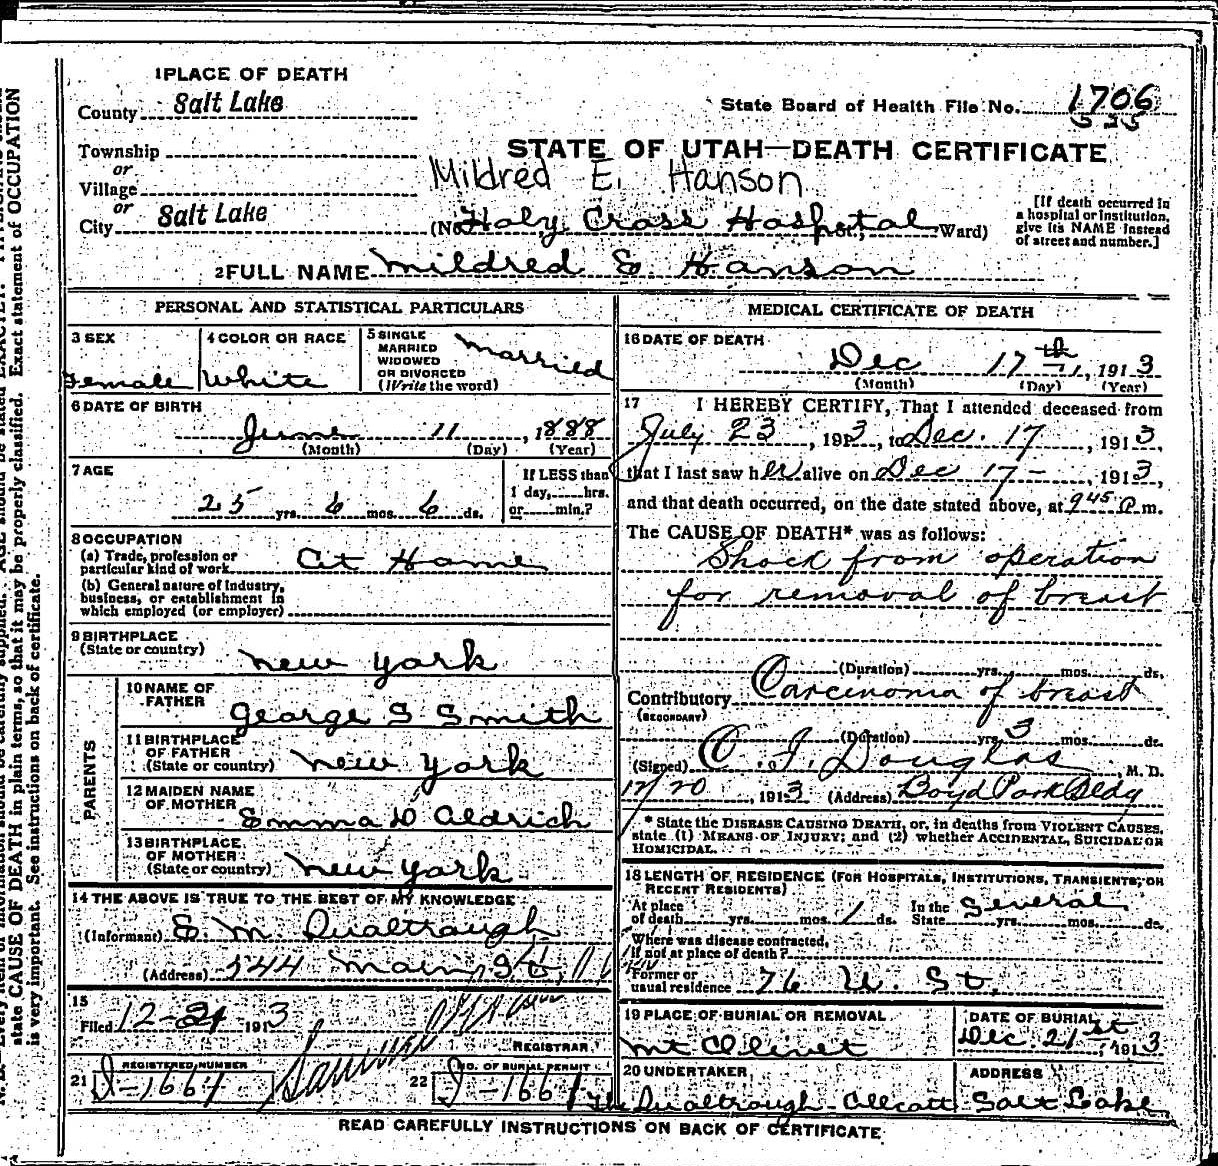 1 PLACE OF DEATH
County Salt Lake
State Board of Health File No. 1706
Township
or
Village
or
City Salt Lake
STATE OF UTAH—DEATH CERTIFICATE
Mildred E. Hanson
(No. Holy Cross Hospital St.; Ward)
[If death occurred in
a hospital or institution,
give its NAME instead
of street and number.]
2 FULL NAME Mildred E Hanson
PERSONAL AND STATISTICAL PARTICULARS
3 SEX
Female
4 COLOR OR RACE
White
5 SINGLE
MARRIED
WIDOWED
OR DIVORCED
(Write the word)
Married
6 DATE OF BIRTH
June 11, 1888
(Month) (Day) (Year)
7 AGE
25 yrs. 6 mos. 6 ds.
If LESS than
1 day, hrs.
or min.?
8 OCCUPATION
(a) Trade, profession or
particular kind of work At Home
(b) General nature of industry,
business, or establishment in
which employed (or employer)
9 BIRTHPLACE
(State or country) New York
PARENTS
10 NAME OF
FATHER George S Smith
11 BIRTHPLACE
OF FATHER
(State or country) New York
12 MAIDEN NAME
OF MOTHER Emma D Aldrich
13 BIRTHPLACE
OF MOTHER
(State or country) New York
14 THE ABOVE IS TRUE TO THE BEST OF MY KNOWLEDGE
(Informant) E. M. Dualtrough
(Address) 544 Main St.
15
Filed 12-21 1913
REGISTRAR
21 REGISTERED NUMBER
22 NO. OF BURIAL PERMIT
MEDICAL CERTIFICATE OF DEATH
16 DATE OF DEATH
Dec 17th, 1913
(Month) (Day) (Year)
17 I HEREBY CERTIFY, That I attended deceased from
July 23, 1913, to Dec. 17, 1913,
that I last saw her alive on Dec 17 - 1913,
and that death occurred, on the date stated above, at 9 45 P. m.
The CAUSE OF DEATH* was as follows:
Shock from operation
for removal of breast
(Duration) yrs. mos. ds.
Contributory Carcinoma of breast
(SECONDARY)
(Duration) yrs. 3 mos. ds.
(Signed) C. F. Douglas, M. D.
12/20, 1913 (Address) Boyd Park Bldg
* State the DISEASE CAUSING DEATH, or, in deaths from VIOLENT CAUSES,
state (1) MEANS OF INJURY; and (2) whether ACCIDENTAL, SUICIDAL OR
HOMICIDAL.
18 LENGTH OF RESIDENCE (FOR HOSPITALS, INSTITUTIONS, TRANSIENTS, OR
RECENT RESIDENTS)
At place
of death yrs. mos. 1 ds.
In the
State Several yrs. mos. ds.
Where was disease contracted,
if not at place of death?
Former or
usual residence 76 U. St.
19 PLACE OF BURIAL OR REMOVAL
Mt Olivet
DATE OF BURIAL
Dec. 21st, 1913
20 UNDERTAKER
The Dualtrough-Allcott
ADDRESS
Salt Lake
READ CAREFULLY INSTRUCTIONS ON BACK OF CERTIFICATE
state CAUSE OF DEATH in plain terms, so that it may be properly classified. Exact statement of OCCUPATION
is very important. See instructions on back of certificate.